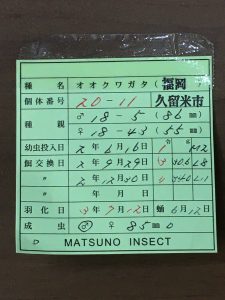 種 名 オオクワガタ (福岡
個体番号 20-11 久留米市
種親 ♂ 18-5 (86 ㎜)
♀ 18-43 (55 ㎜)
幼虫投入日 2年6月16日 1
餌交換日 2年9月29日 30.6 L8
〃 2年12月30日 34.6 L11
〃 年 月 日
羽化日 3年7月12日 蛹 6月12日
成虫 ♂ ♀ 85㎜
D MATSUNO INSECT